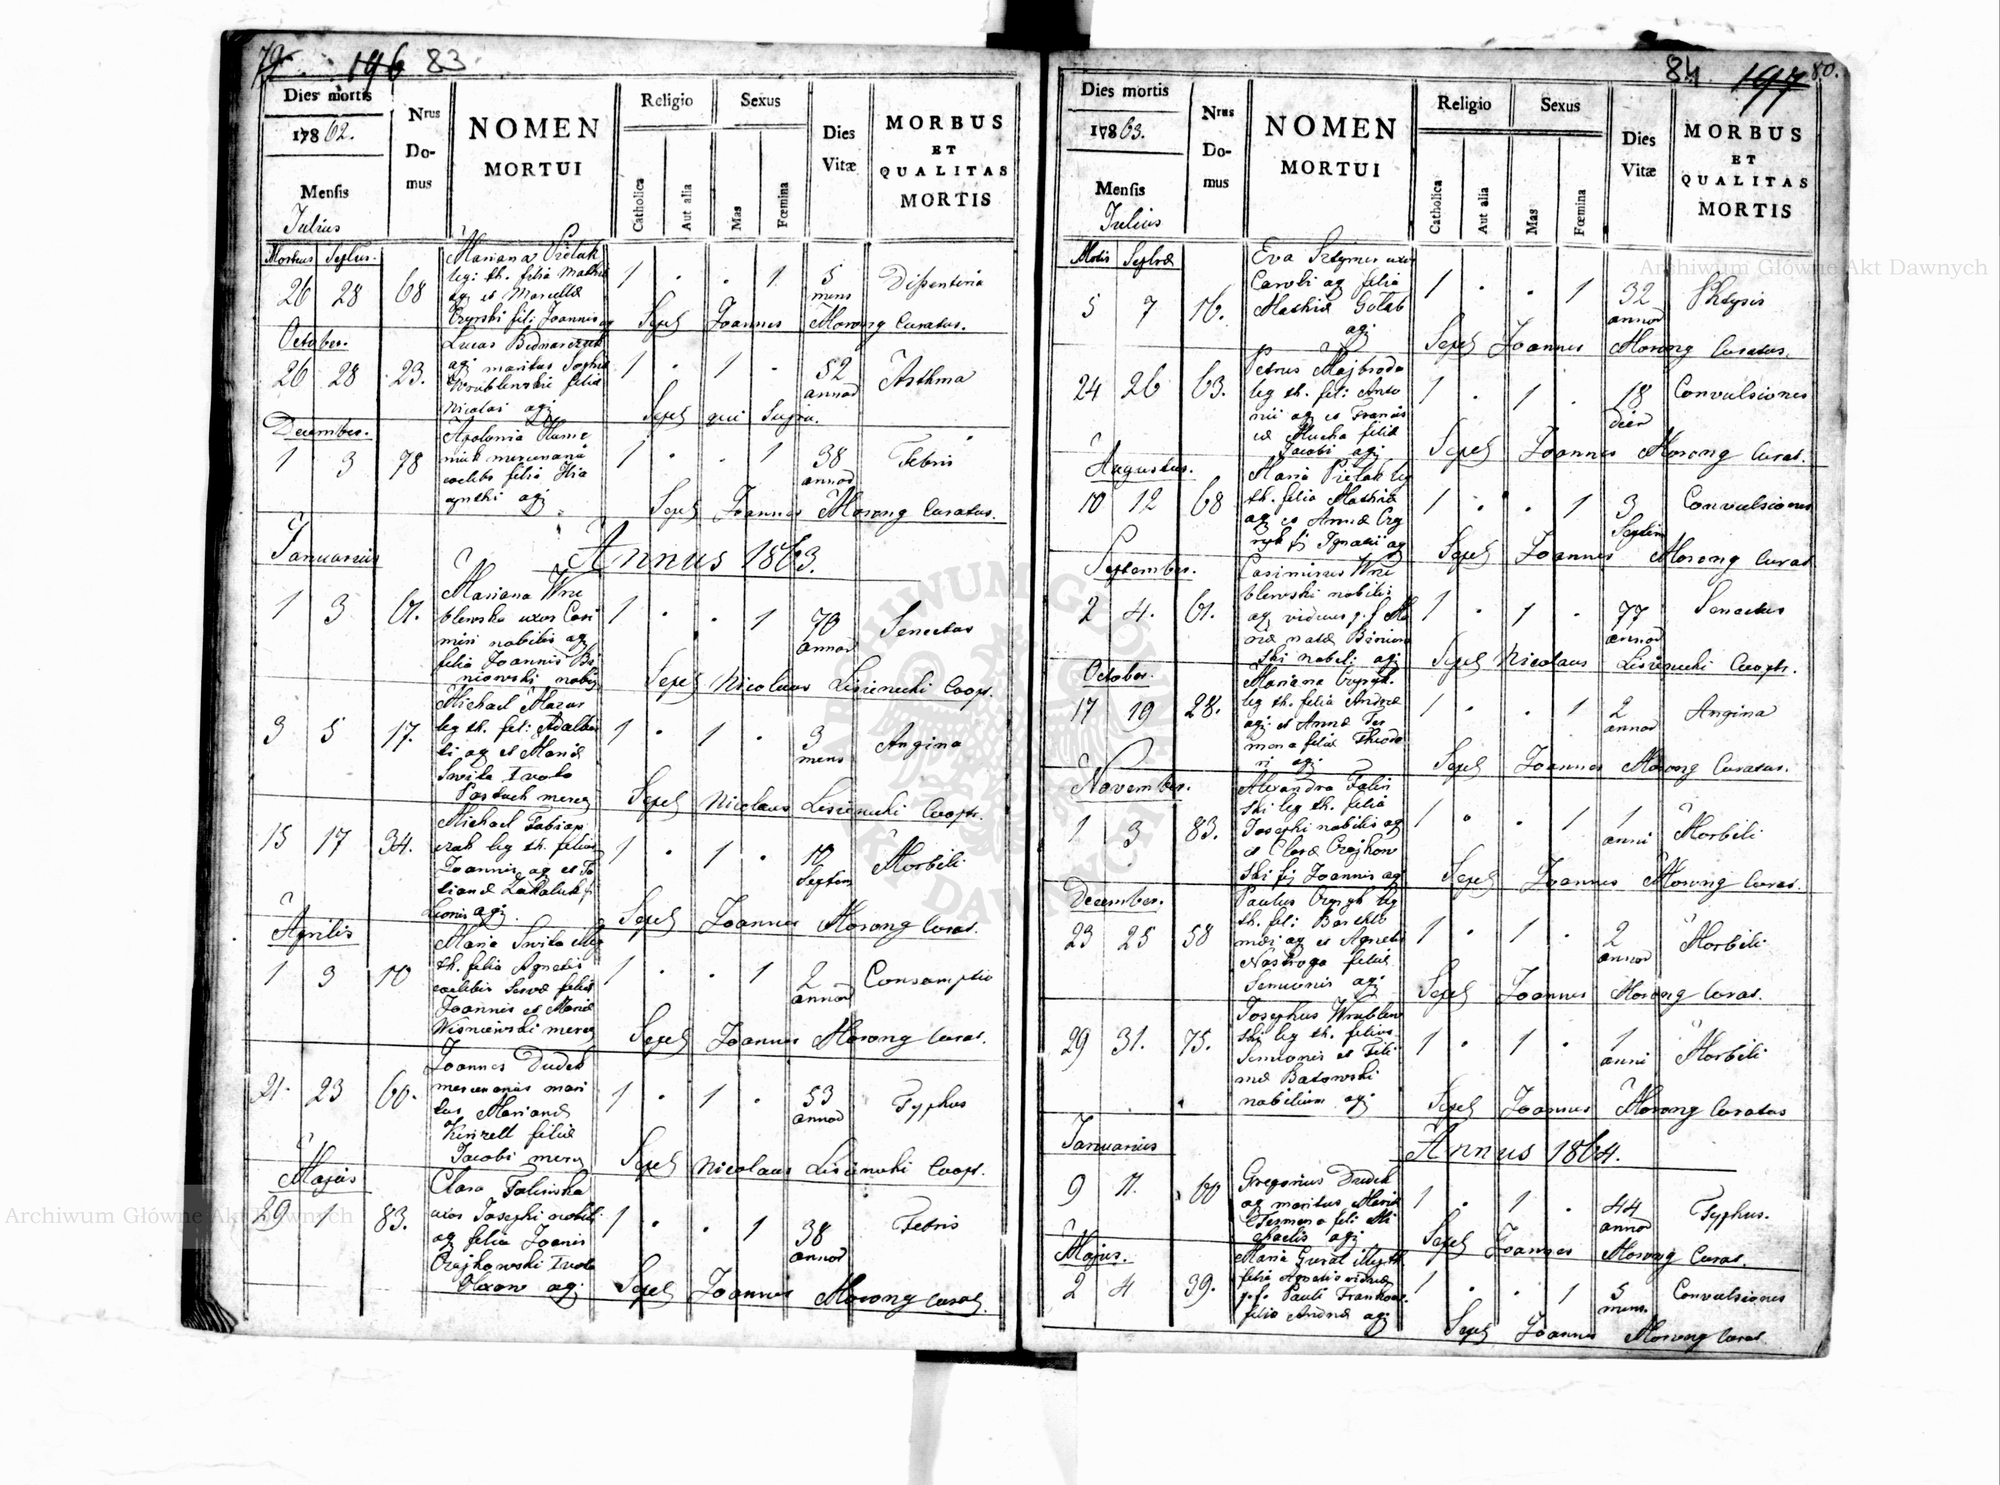 79. 196 83
Dies mortis
1862.
Mensis
Julius
Nrus Domus
NOMEN
MORTUI
Religio
Catholica
Aut alia
Sexus
Mas
Fœmina
Dies
Vitæ
MORBUS
ET
QUALITAS
MORTIS
Mortuus Seplus.
26 28 68
Mariana Pietak
leg: th. filia Mathi
ag et Marcellæ
fil: Joannis ag
1 . . 1 5 mens Dissenteria
Sepel Joannes Morong Curatus.
October.
26 28 23.
Lucas Bednarczuk
agi maritus Sophiæ
Wroblewskie filiæ
Nicolai agi
1 . 1 . 52 annor Asthma
Sepel qui Supra.
December.
1 3 78
Apolonia
mercenaria
coelebs filia Hia
cynthi agi
1 . . 1 38 annor Febris
Sepel Joannes Morong Curatus.
Januarius
Annus 1863.
1 3 61.
Mariana Wro
blewska uxor Casi
miri nobilis ag
filia Joannis Bi
niowski nobilis
1 . . 1 70 annor Senectus
Sepel Nicolaus Lisieniecki Coop.
3 5 17.
Michael Mazur
leg th. fil: Adalber
ti ag et Mariæ
Swita Iwola
Pastuch merc
1 . 1 . 3 mens Angina
Sepel Nicolaus Lisieniecki Coop.
15 17 34.
Michael Fabian
leg th. filius
Joannis ag et Ju
lianæ
Leonis agi.
1 . 1 . 10 Septim Morbili
Sepel Joannes Morong Curat.
Aprilis
1 3 70
Maria Swita illeg
th. filia Agnetis
coelibis Servæ filiæ
Joannis et Mariæ
Wisniewski merc
1 . . 1 2 annor Consumptio
Sepel Joannes Morong Curat.
21. 23 60.
Joannes Dudek
mercenarius mari
tus Marianæ
filiæ
Jacobi merc
1 . 1 . 53 annor Typhus
Sepel Nicolaus Lisieniecki Coop.
Majus
29 1 83.
Clara Falinska
uxor Josephi nobili
ag filia Joanis
Czajkowski Iwola
agi
1 . . 1 38 annor Febris
Sepel Joannes Morong Curat.
84 197 80.
Dies mortis
1863.
Mensis
Julius
Nrus Domus
NOMEN
MORTUI
Religio
Catholica
Aut alia
Sexus
Mas
Fœmina
Dies
Vitæ
MORBUS
ET
QUALITAS
MORTIS
5 7 16.
Eva uxor
Caroli ag filia
Mathiæ Golab
agi
1 . . 1 32 annor Phtysis
Sepel Joannes Morong Curatus.
24 26 63.
Petrus Majbroda
leg th. fil: Anto
nii ag et Francis
cæ Mucha filiæ
Jacobi agi
1 . 1 . 18 dier Convulsiones
Sepel Joannes Morong Curat.
Augustus.
10 12 68
Maria Pietak leg
th. filia Mathiæ
ag et Annæ
Ignatii ag
1 . . 1 3 Septim Convulsiones
Sepel Joannes Morong Curat
September.
2 4. 61.
Casimirus Wro
blewski nobilis
ag viduus p. f. Ma
riæ natæ Biniow
ski nobili agi
1 . 1 . 77 annor Senectus
Sepel Nicolaus Lisieniecki Coopr.
October.
17 19 28.
Mariana
leg th. filia Andreæ
agi et Annæ
filiæ Theodo
ri agi
1 . . 1 2 annor Angina
Sepel Joannes Morong Curatus.
November.
1 3 83.
Alexandra Falin
ski leg th. filia
Josephi nobilis ag
et Claræ Czajkow
ski fil Joannis ag
1 . . 1 1 anni Morbili
Sepel Joannes Morong Curat.
December.
23 25 58
Paulus leg
th. fil: Bartholo
mæi ag et Agnetis
filiæ
Semionis agi
1 . 1 . 2 annor Morbili
Sepel Joannes Morong Curat.
29 31. 75.
Josephus Wroblew
ski leg th. filius
Semionis et Feli
Batowski
nobilium agi
1 . 1 . 1 anni Morbili
Sepel Joannes Morong Curatus
Januarius
Annus 1864.
9 11. 60
Gregorius Dudek
ag maritus Mariæ
fili Mi
chaelis agi
1 . 1 . 44 annor Typhus.
Sepel Joannes Morong Curat.
Majus.
2 4 39.
Maria Gural illeg th
filia Agnetis viduæ
p. f. Pauli
filia Andreæ agi
1 . . 1 5 mens. Convulsiones
Sepel Joannes Morong Curat.
Archiwum Główne Akt Dawnych
Archiwum Główne Akt Dawnych
ARCHIWUM GŁÓWNE
AKT DAWNYCH